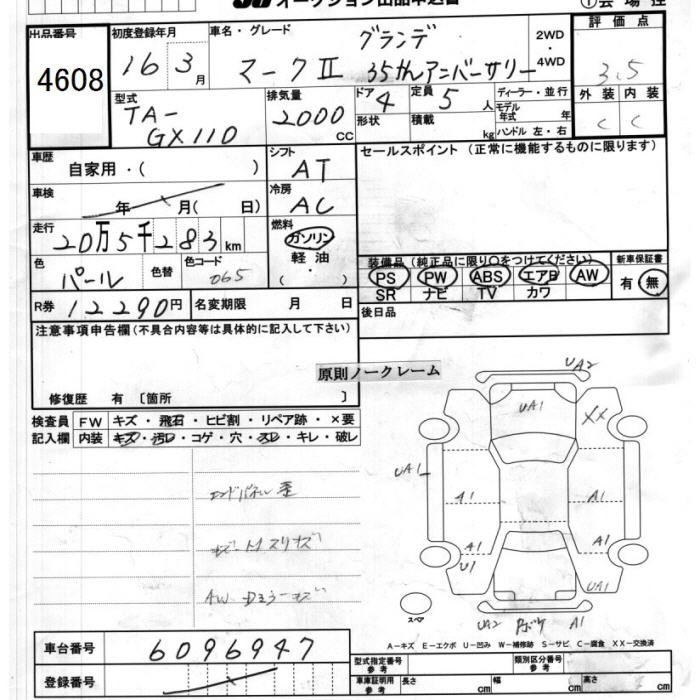 オークション出品申込書
出品番号
4608
初度登録年月
16 3月
車名・グレード
マークII
グランデ
35thアニバーサリー
2WD
・
4WD
評価点
3.5
外装 内装
C C
型式
TA-
GX110
排気量
2000
CC
ドア
4
定員
5
人
形状
積載
kg
ディーラー・並行
モデル
年式 年
ハンドル 左・右
車歴
自家用・( )
シフト
AT
セールスポイント (正常に機能するものに限ります)
車検
年 月( 日)
冷房
AC
走行
20万5千283km
燃料
ガソリン
・
軽油
・
( )
色
パール
色替
色コード
065
装備品 (純正品に限り○をつけてください)
PS PW ABS エアB AW
SR ナビ TV カワ
新車保証書
有・無
R券
12290円
名変期限 月 日
後日品
注意事項申告欄(不具合内容等は具体的に記入して下さい)
原則ノークレーム
修復歴 有 〔箇所 〕
検査員
記入欄
FW キズ・飛石・ヒビ割・リペア跡・×要
内装 キズ・汚レ・コゲ・穴・スレ・キレ・破レ
エンドパネル歪
AW
UA2
UA1
XX
UA1
A1
A1
A1
U1
A1
UA1
スペア
UA2
A1
A−キズ E−エクボ U−凹み W−補修跡 S−サビ C−腐食 XX−交換済
車台番号
6096947
登録番号
型式指定番号
参考
類別区分番号
参考
車庫証明用
参考
長さ cm
幅 cm
高さ cm